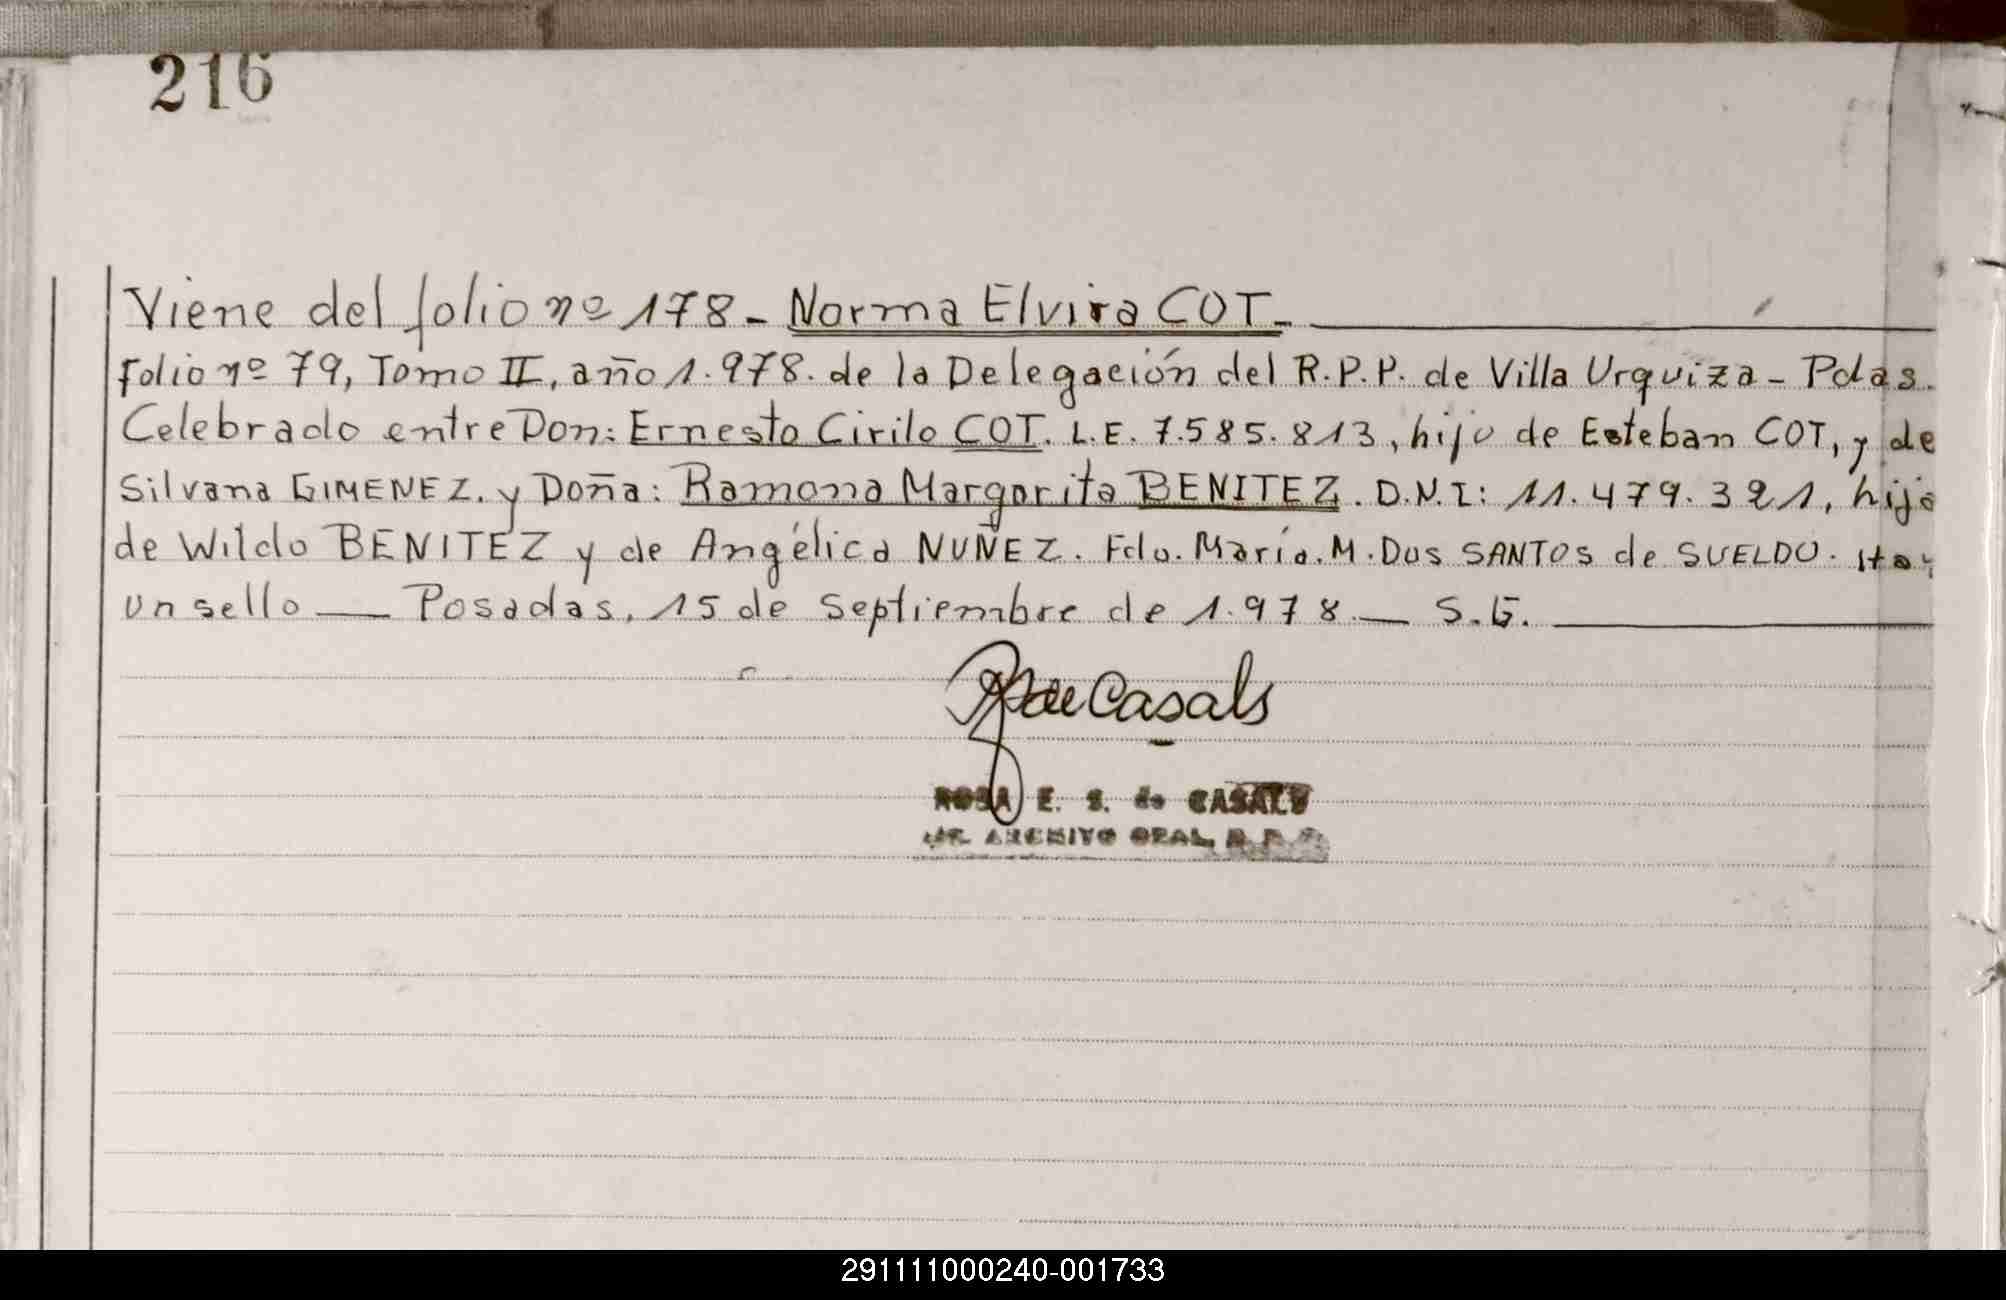 216
Viene del folio nº 178 - Norma Elvira COT -
folio nº 79, Tomo II, año 1.978. de la Delegación del R.P.P. de Villa Urquiza - Pdas.
Celebrado entre Don: Ernesto Cirilo COT. L.E. 7.585.813, hijo de Esteban COT, y de
Silvana GIMENEZ. y Doña: Ramona Margarita BENITEZ. D.N.I: 11.479.321, hija
de Wildo BENITEZ y de Angélica NUÑEZ. Fdo. María. M. Dos SANTOS de SUELDO. Hay
un sello — Posadas, 15 de Septiembre de 1.978 — S.G.
de Casals
ROSA E. S. de CASALS
ARCHIVO GRAL. R. P. P.
291111000240-001733